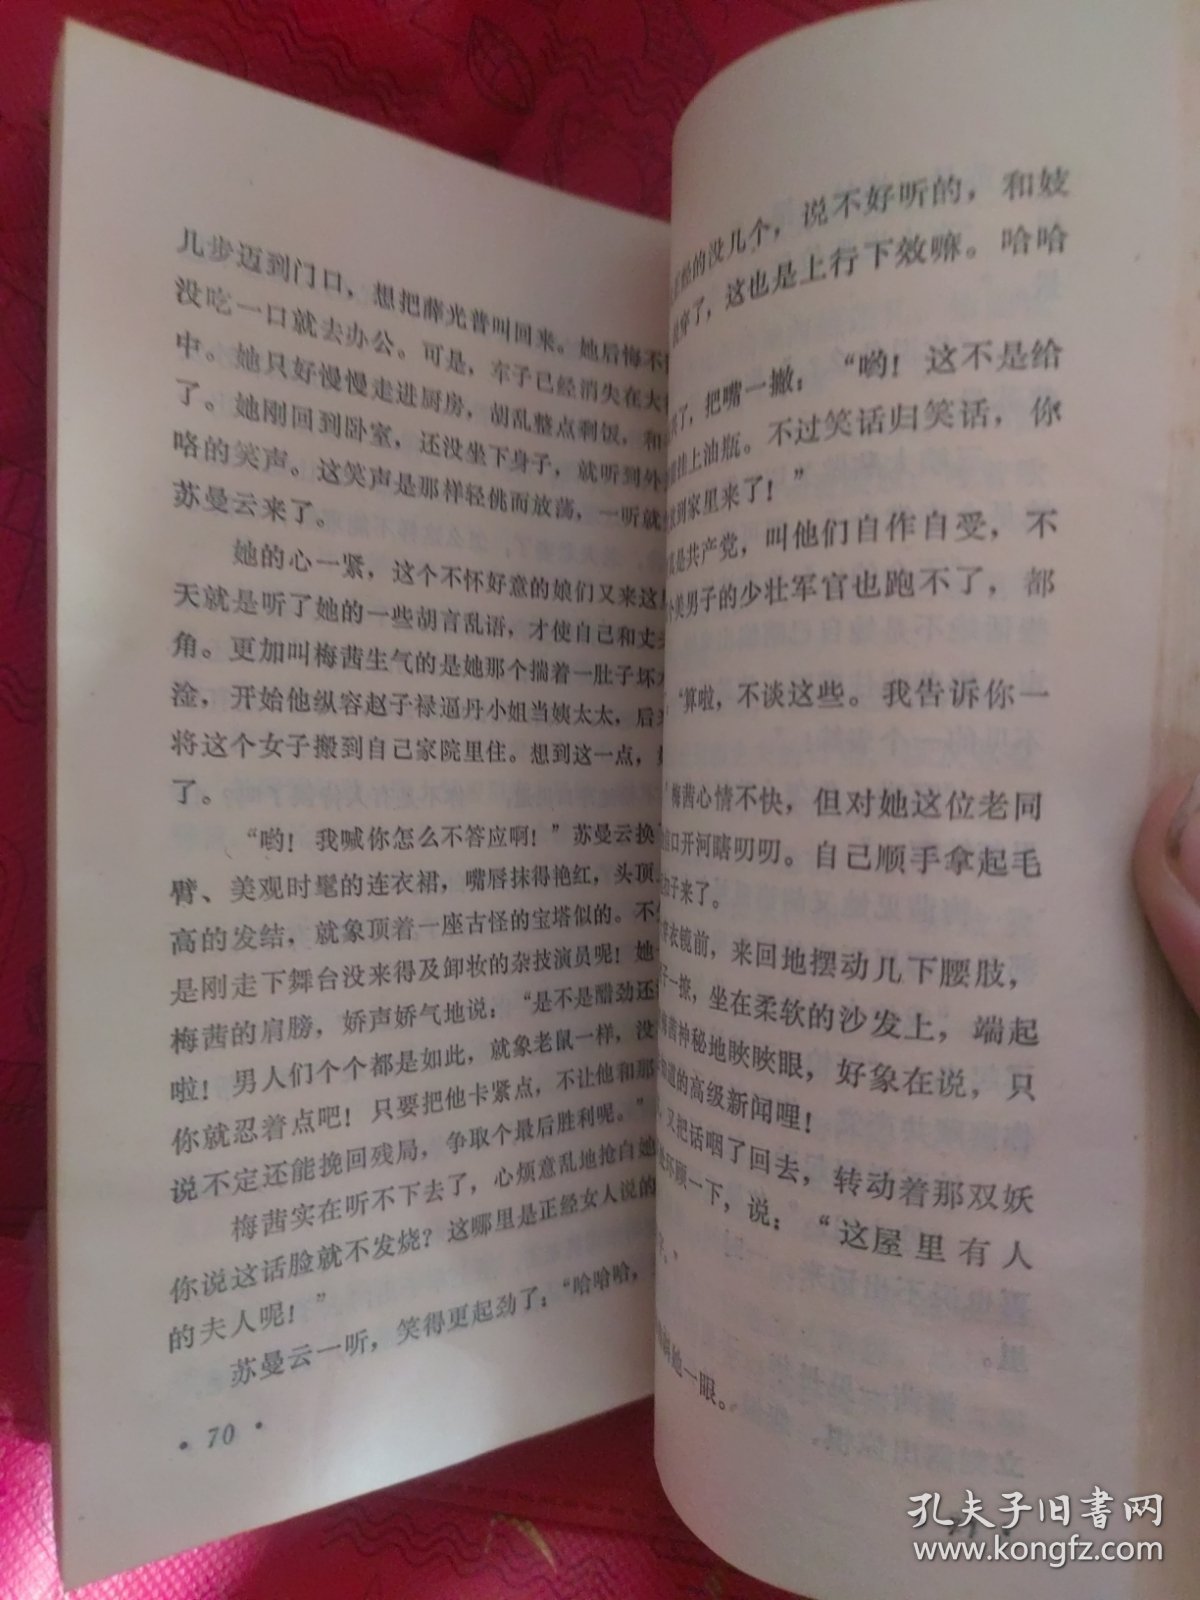 几步迈到门口，想把薛光普叫回来。她后悔不
没吃一口就去办公。可是，车子已经消失在大
中。她只好慢慢走进厨房，胡乱整点剩饭，和
了。她刚回到卧室，还没坐下身子，就听到外
咯的笑声。这笑声是那样轻佻而放荡，一听就
苏曼云来了。
她的心一紧，这个不怀好意的娘们又来这
天就是听了她的一些胡言乱语，才使自己和丈
角。更加叫梅茜生气的是她那个揣着一肚子坏
淦，开始他纵容赵子禄逼丹小姐当姨太太，后
将这个女子搬到自己家院里住。想到这一点，
了。
“哟！我喊你怎么不答应啊！”苏曼云换
臂、美观时髦的连衣裙，嘴唇抹得艳红，头顶
高的发结，就象顶着一座古怪的宝塔似的。不
是刚走下舞台没来得及卸妆的杂技演员呢！她
梅茜的肩膀，娇声娇气地说：“是不是醋劲还
啦！男人们个个都是如此，就象老鼠一样，没
你就忍着点吧！只要把他卡紧点，不让他和那
说不定还能挽回残局，争取个最后胜利呢。”
梅茜实在听不下去了，心烦意乱地抢白她
你说这话脸就不发烧？这哪里是正经女人说的
的夫人呢！”
苏曼云一听，笑得更起劲了：“哈哈哈，
· 70 ·
经的没几个，说不好听的，和妓
穿了，这也是上行下效嘛。哈哈
了，把嘴一撇：“哟！这不是给
挂上油瓶。不过笑话归笑话，你
到家里来了！”
是共产党，叫他们自作自受，不
个美男子的少壮军官也跑不了，都
“算啦，不谈这些。我告诉你一
梅茜心情不快，但对她这位老同
口开河瞎叨叨。自己顺手拿起毛
子来了。
衣镜前，来回地摆动几下腰肢，
子一撩，坐在柔软的沙发上，端起
梅茜神秘地䀹䀹眼，好象在说，只
知道的高级新闻哩！
又把话咽了回去，转动着那双妖
环顾一下，说：“这屋里有人
她一眼。
孔夫子旧书网
www.kongfz.com